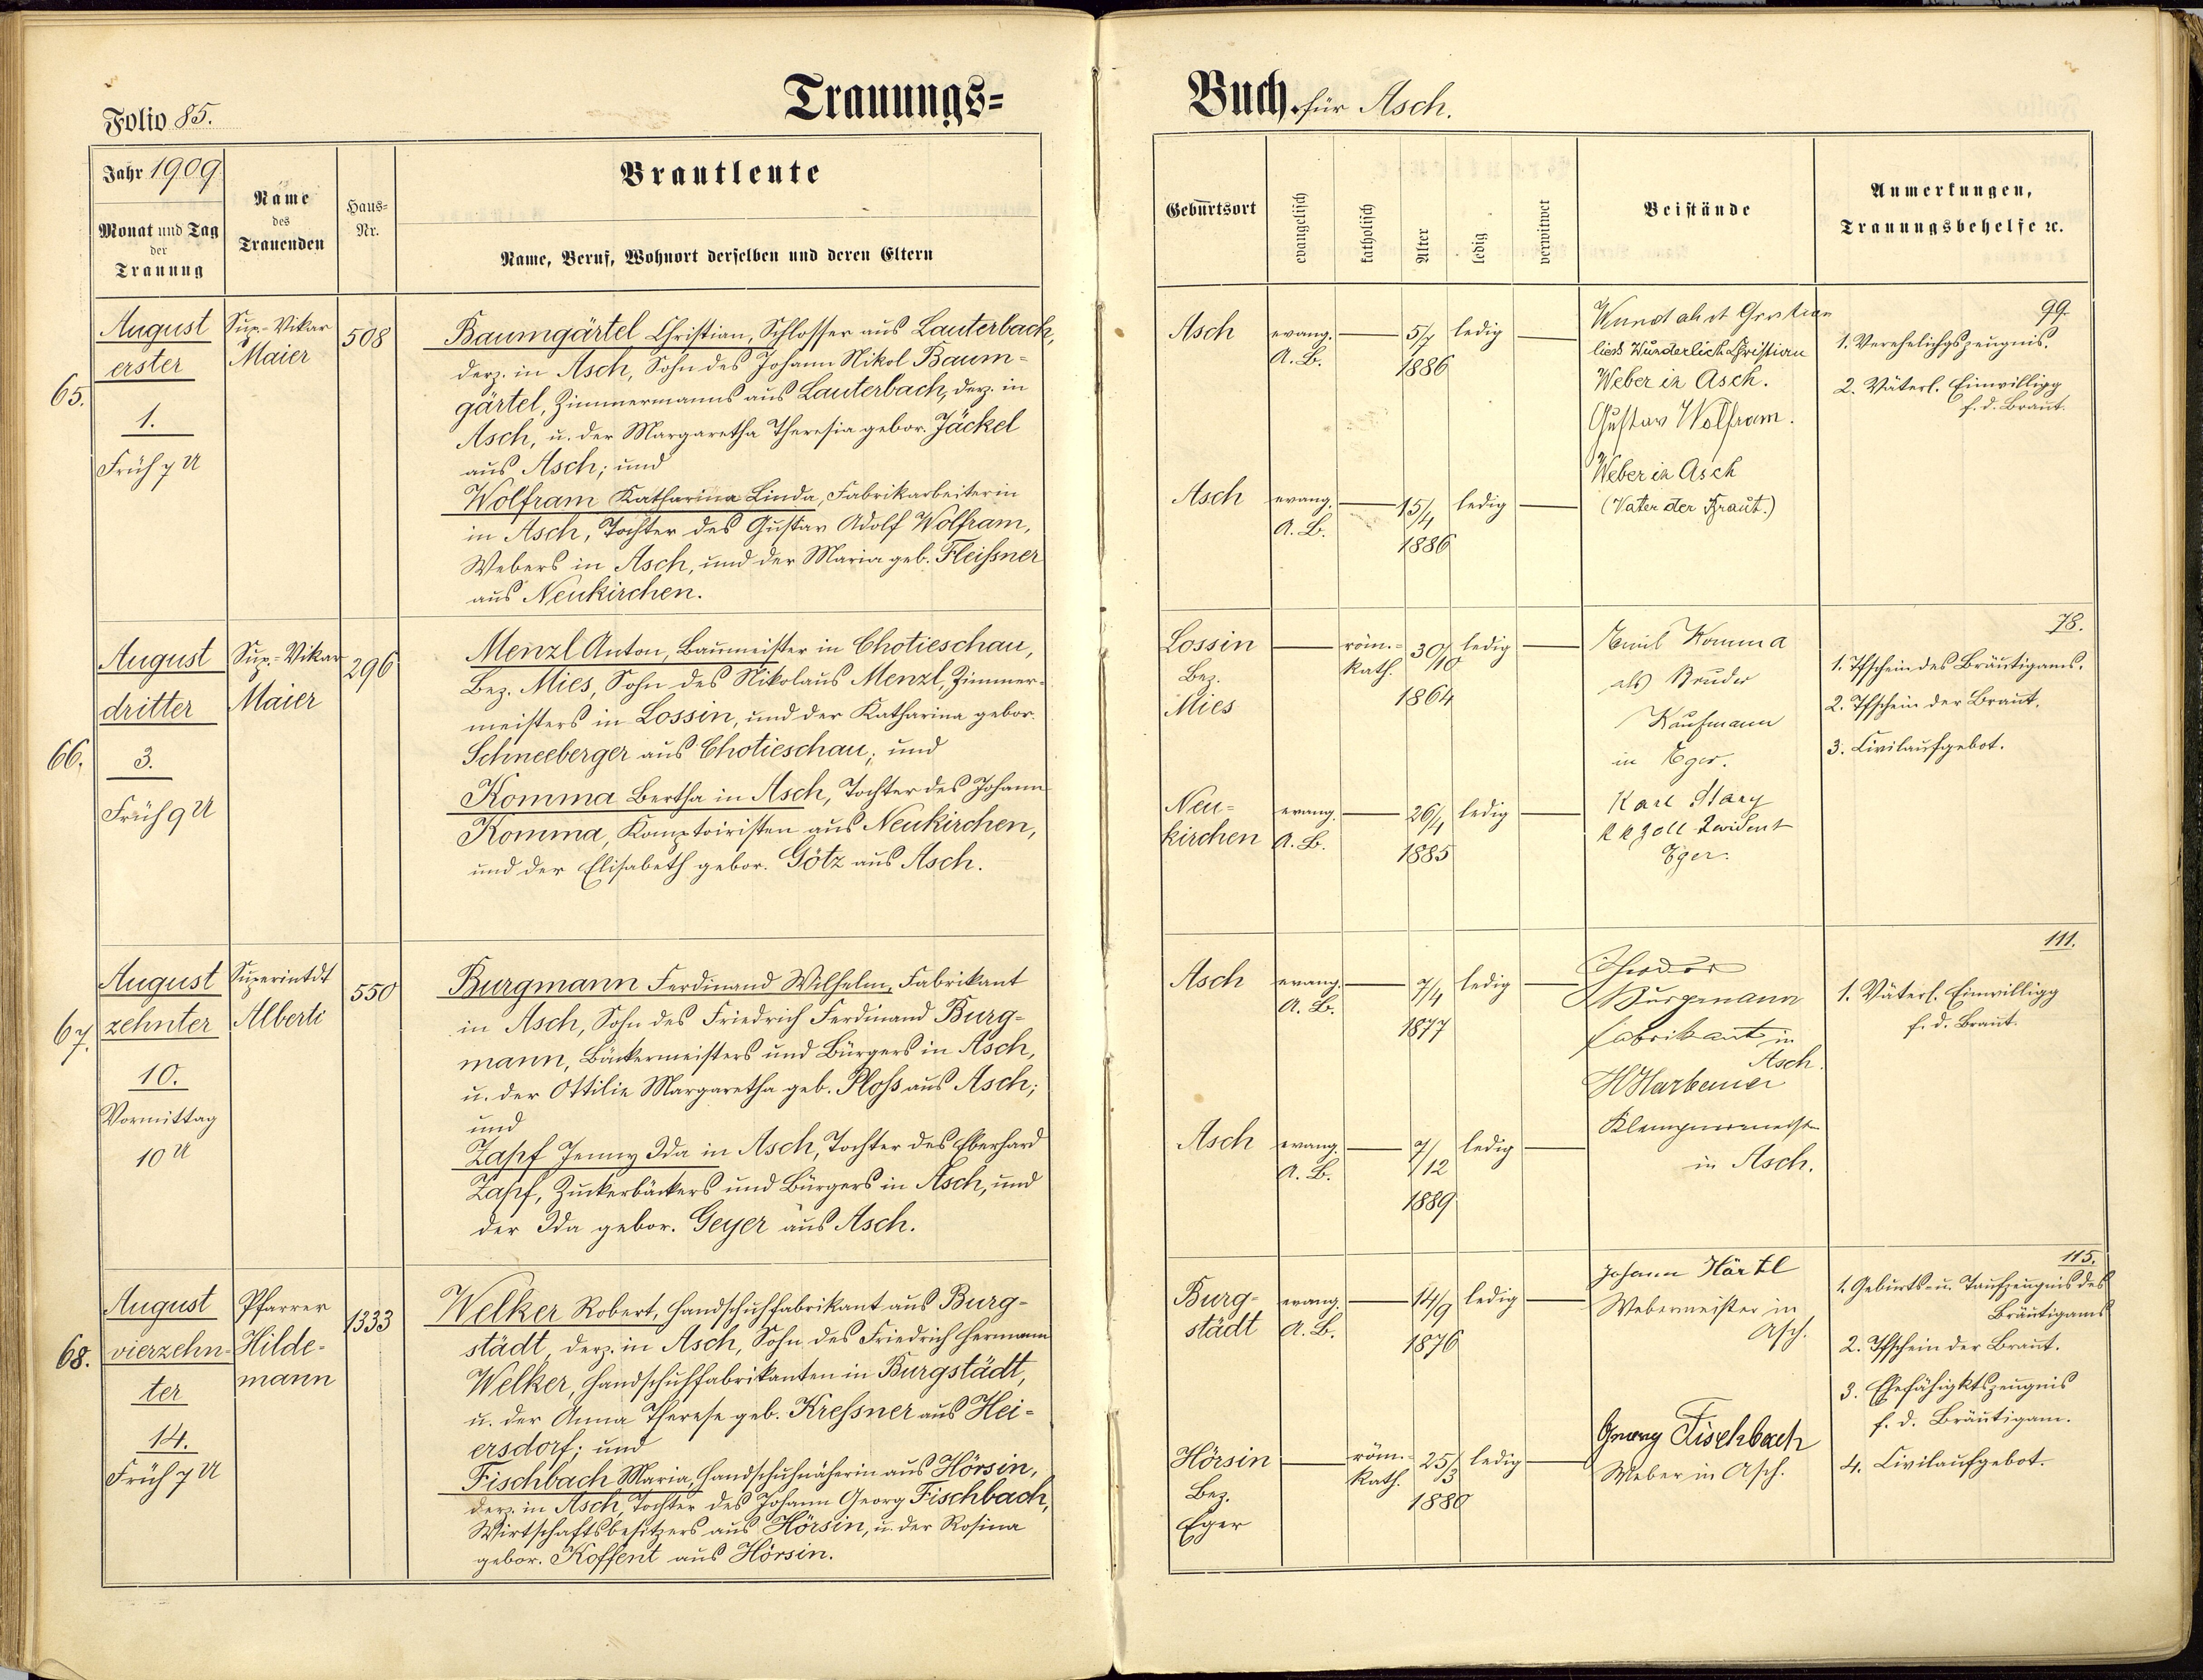 Folio 85.
Trauungs=
Jahr 1909
Monat und Tag
der
Trauung
Name
des
Trauenden
Haus=
Nr.
Brautleute
Name, Beruf, Wohnort derselben und deren Eltern
65.
August
erster
1.
Früh 7 U
Sup.-Vikar
Maier
508
Baumgärtel Christian, Schlosser aus Lauterbach,
derz. in Asch, Sohn des Johann Nikol Baum-
gärtel, Zimmermanns aus Lauterbach, derz. in
Asch, u. der Margaretha Theresia gebor. Jäckel
aus Asch; und
Wolfram Katharina Linda, Fabrikarbeiterin
in Asch, Tochter des Gustav Adolf Wolfram,
Webers in Asch, und der Maria geb. Fleißner
aus Neukirchen.
66.
August
dritter
3.
Früh 9 U
Sup.-Vikar
Maier
296
Menzl Anton, Baumeister in Chotieschau,
Bez. Mies, Sohn des Nikolaus Menzl, Zimmer-
meisters in Lossin, und der Katharina gebor.
Schneeberger aus Chotieschau; und
Komma Bertha in Asch, Tochter des Johann
Komma, Komptoiristen aus Neukirchen,
und der Elisabeth gebor. Götz aus Asch.
67.
August
zehnter
10.
Vormittag
10 U
Superintdt
Alberti
550
Burgmann Ferdinand Wilhelm, Fabrikant
in Asch, Sohn des Friedrich Ferdinand Burg-
mann, Bäckermeisters und Bürgers in Asch,
u. der Ottilie Margaretha geb. Ploß aus Asch;
und
Zapf Jenny Ida in Asch, Tochter des Eberhard
Zapf, Zuckerbäckers und Bürgers in Asch, und
der Ida gebor. Geyer aus Asch.
68.
August
vierzehn-
ter
14.
Früh 7 U
Pfarrer
Hilde-
mann
1333
Welker Robert, Handschuhfabrikant aus Burg-
städt, derz. in Asch, Sohn des Friedrich Hermann
Welker, Handschuhfabrikanten in Burgstädt,
u. der Anna Therese geb. Kreßner aus Hei-
ersdorf; und
Fischbach Maria, Handschuhnäherin aus Hörsin,
derz. in Asch, Tochter des Johann Georg Fischbach,
Wirtschaftsbesitzers aus Hörsin, u. der Rosina
gebor. Koffent aus Hörsin.
Buch für Asch.
Geburtsort
evangelisch
katholisch
Alter
ledig
verwitwet
Beistände
Anmerkungen,
Trauungsbehelfe ec.
Asch
evang.
A. B.
5/7
1886
ledig
lies Wunderlich Christian
Weber in Asch.
Gustav Wolfram.
Weber in Asch
(Vater der Braut.)
99.
1. Verehelichgszeugnis.
2. Väterl. Einwilligg
f. d. Braut.
Asch
evang.
A. B.
15/4
1886
ledig
Lossin
Bez.
Mies
röm.-
kath.
30/10
1864
ledig
Emil Komma
als Bruder
Kaufmann
in Eger.
Karl Stary
k k Zoll Revident
Eger.
78.
1. Tfschein des Bräutigams.
2. Tfschein der Braut.
3. Civilaufgebot.
Neu-
kirchen
evang.
A. B.
26/1
1885
ledig
Asch
evang.
A. B.
7/4
1877
ledig
Theodor
Burgmann
Fabrikant in
Asch.
Klempnermeist
in Asch.
111.
1. Väterl. Einwilligg
f. d. Braut.
Asch
evang.
A. B.
7/12
1889
ledig
Burg-
städt
evang.
A. B.
14/9
1876
ledig
Johann Härtl
Webermeister in
Asch.
Georg Fischbach
Weber in Asch.
115.
1. Geburts- u. Taufzeugnis des
Bräutigams
2. Tfschein der Braut.
3. Ehefähigktszeugnis
f. d. Bräutigam.
4. Civilaufgebot.
Hörsin
Bez.
Eger
röm.-
kath.
25/3
1880
ledig